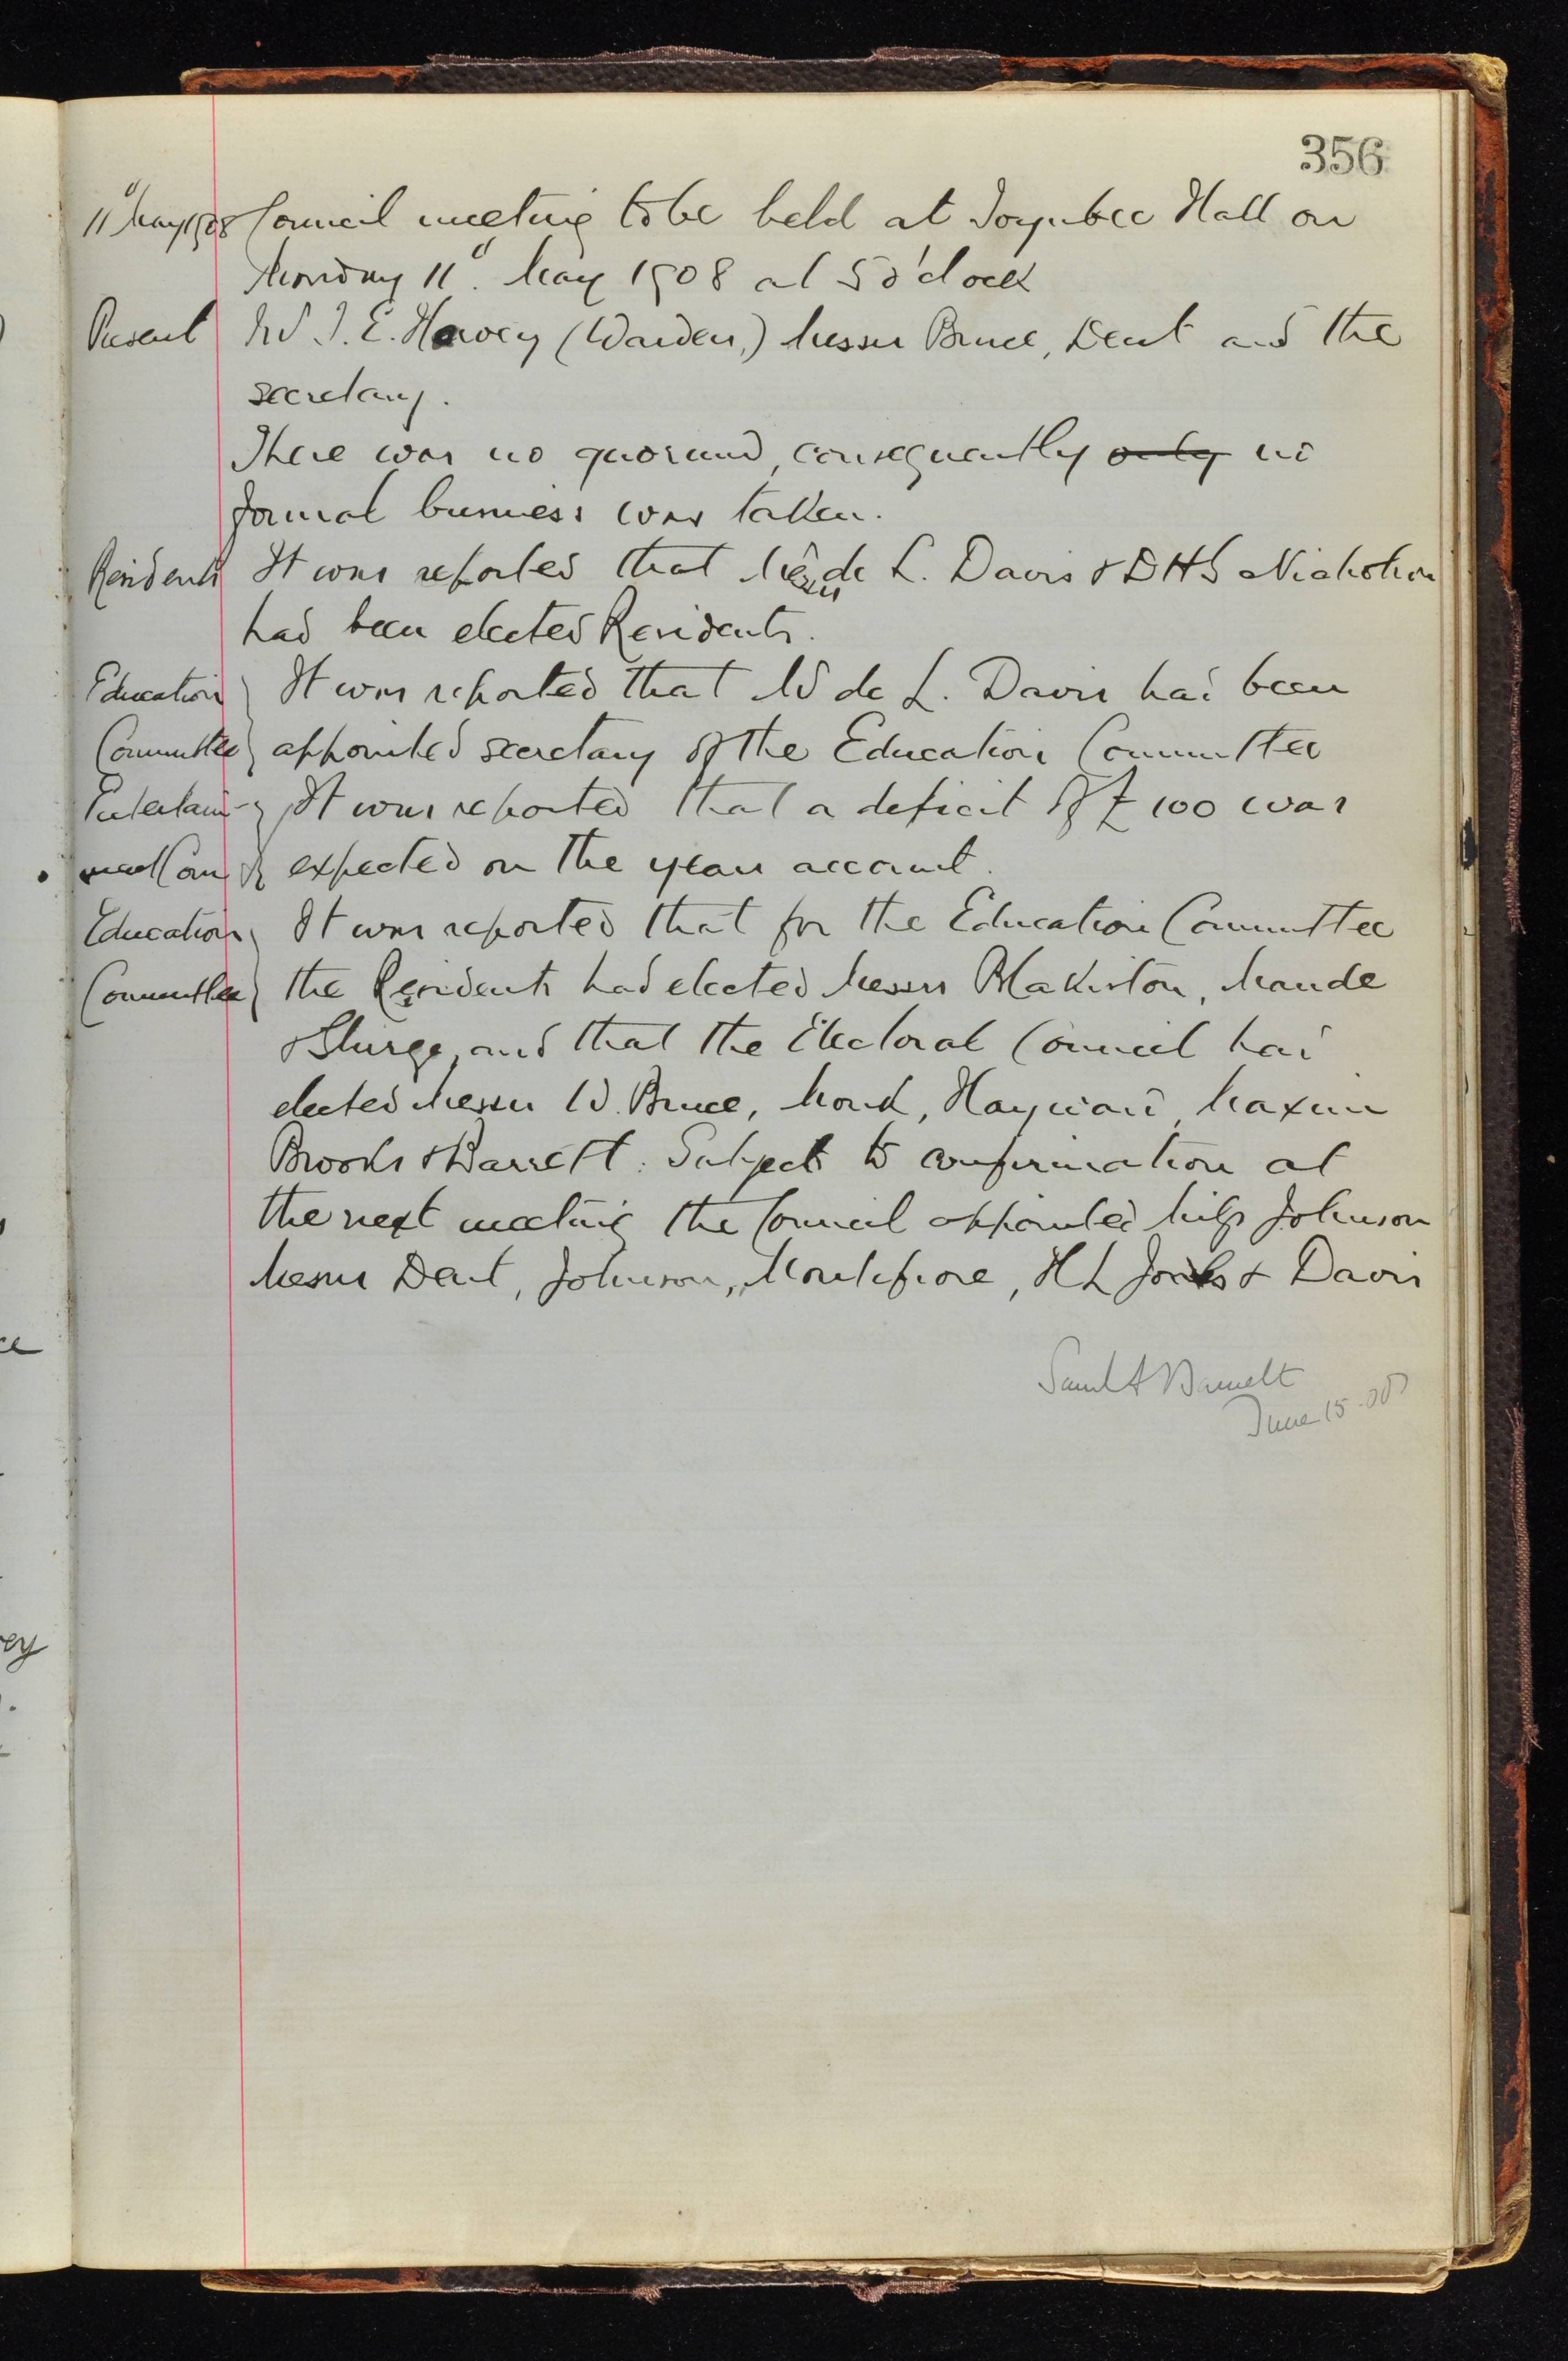 356
11" May 1908 Council meeting to be held at Toynbee Hall on
Monday 11". May 1908 at 5 o'clock
Present Mr T. E. Harvey (Warden,) Messrs Bruce, Dent and the
secretary.
There was no quorum, consequently only no
formal business was taken.
Residents It was reported that Messrs de L. Davis & D H S Nicholson
had been elected Residents.
Education It was reported that Mr de L. Davis had been
Committee appointed secretary of the Education Committee
Entertain- It was reported that a deficit of £100 was
ment Com expected on the years account.
Education It was reported that for the Education Committee
Committee the Residents had elected Messrs Blakiston, Maude
& Sturge, and that the Electoral Council had
elected Messrs W. Bruce, Monk, Hayward, Maxim
Brooks & Barrett. Subject to confirmation at
the next meeting the Council appointed Johnson
Messrs Dent, Johnson, Montefiore, H L & Davis
Saml A Barnett
June 15-08